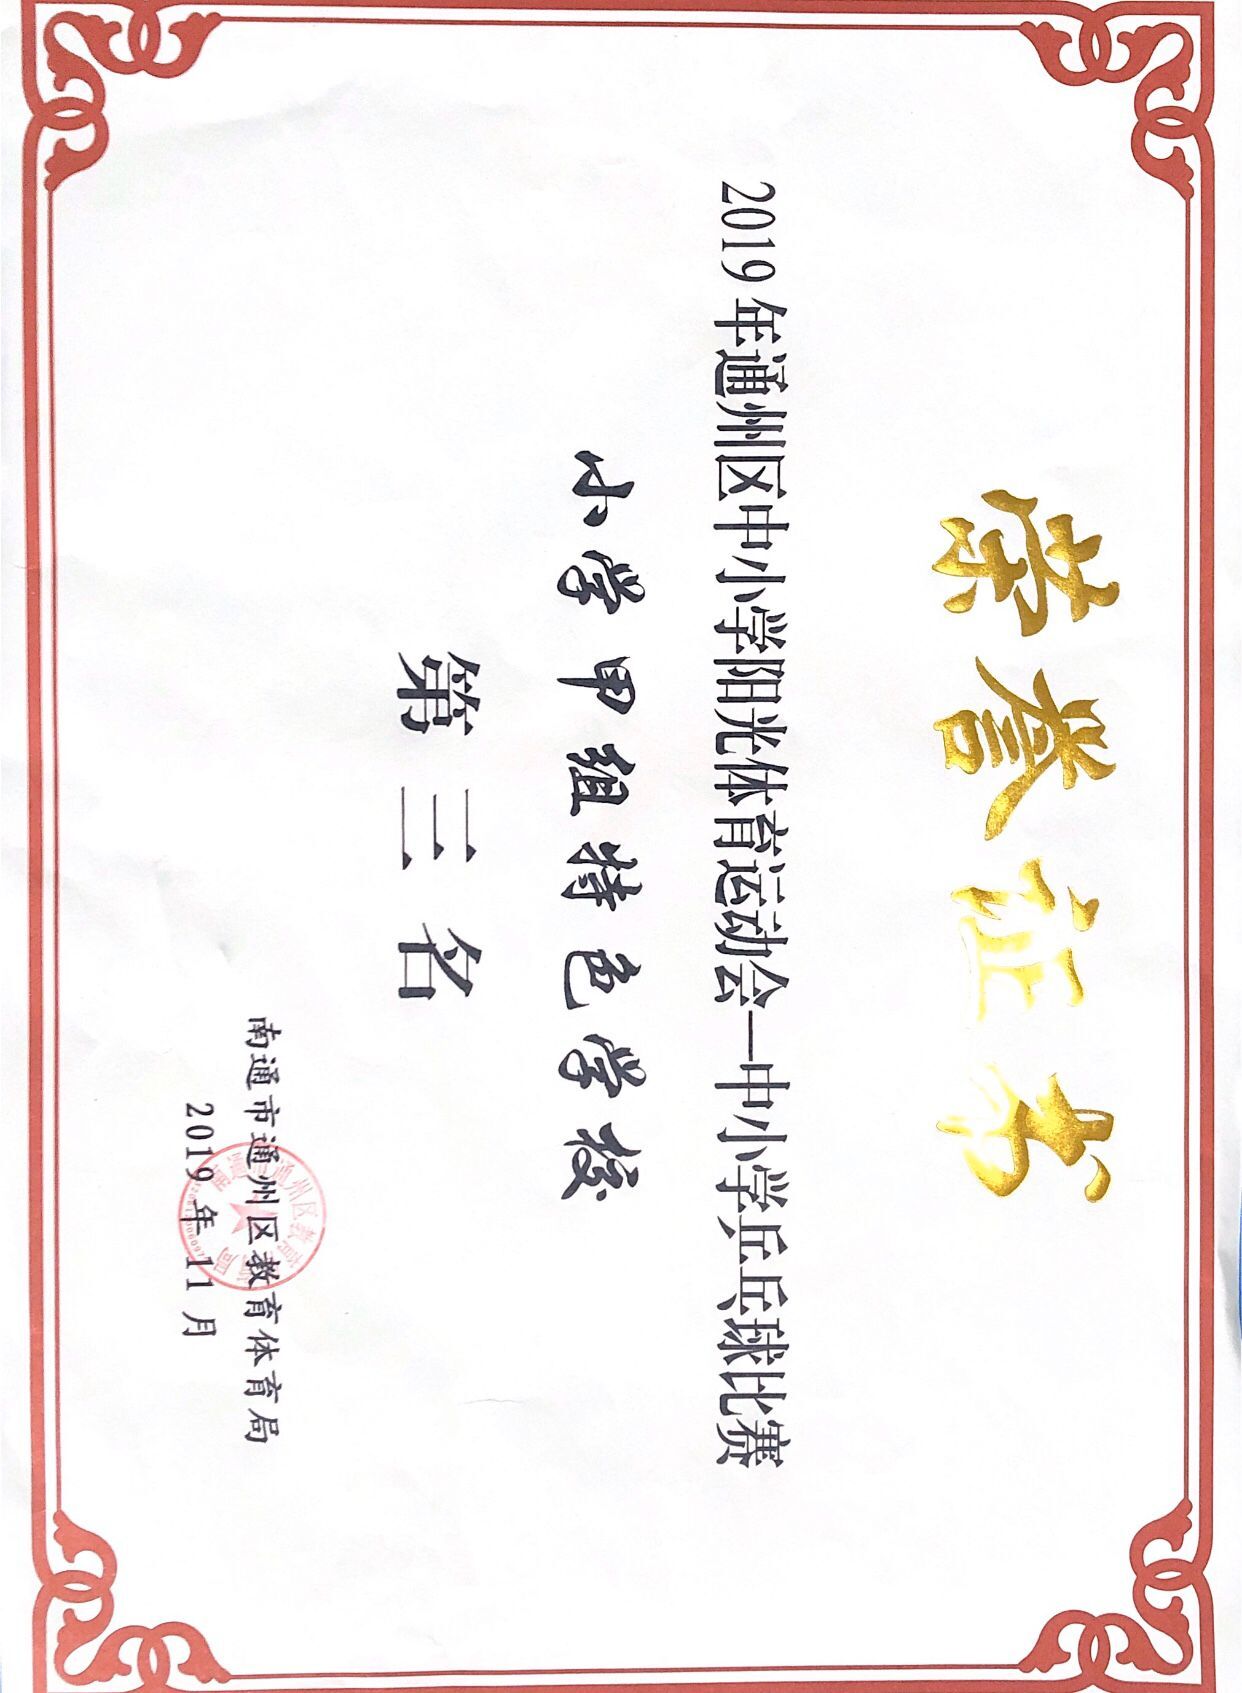 荣誉证书
2019年通州区中小学阳光体育运动会—中小学乒乓球比赛
小学甲组特色学校
第三名
南通市通州区教育体育局
2019年11月